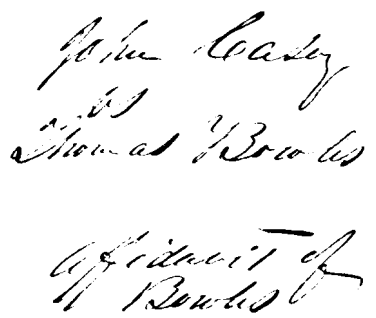 John Casey
vs
Thomas Y Bowles
Affidavit of
Bowles